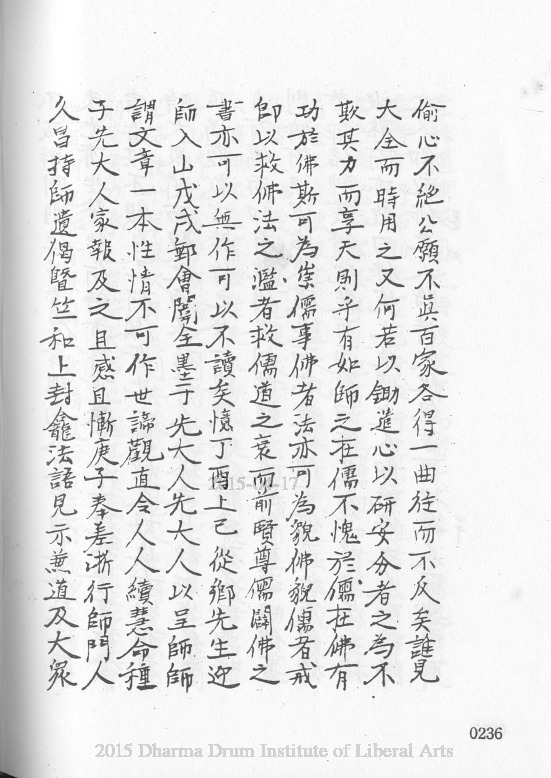 偷心不絕公願不眞百家各得一曲往而不反矣誰見
大全而時用之又何若以鋤遣心以研安分者之為不
欺其力而享天則乎有如師之在儒不愧於儒在佛有
功於佛斯可為崇儒事佛者法亦可為貌佛貌儒者戒
即以救佛法之濫者救儒道之衰而前賢尊儒闢佛之
書亦可以無作可以不讀矣憶丁酉上巳從鄉先生迎
師入山戊戌郵會闈全墨于先大人先大人以呈師師
謂文章一本性情不可作世諦觀直令人人續慧命種
子先大人家報及之且感且慚庚子奉差浙行師門人
久昌持師遺偈暨竺和上封龕法語見示兼道及大衆
0236
2015-07-17
2015 Dharma Drum Institute of Liberal Arts